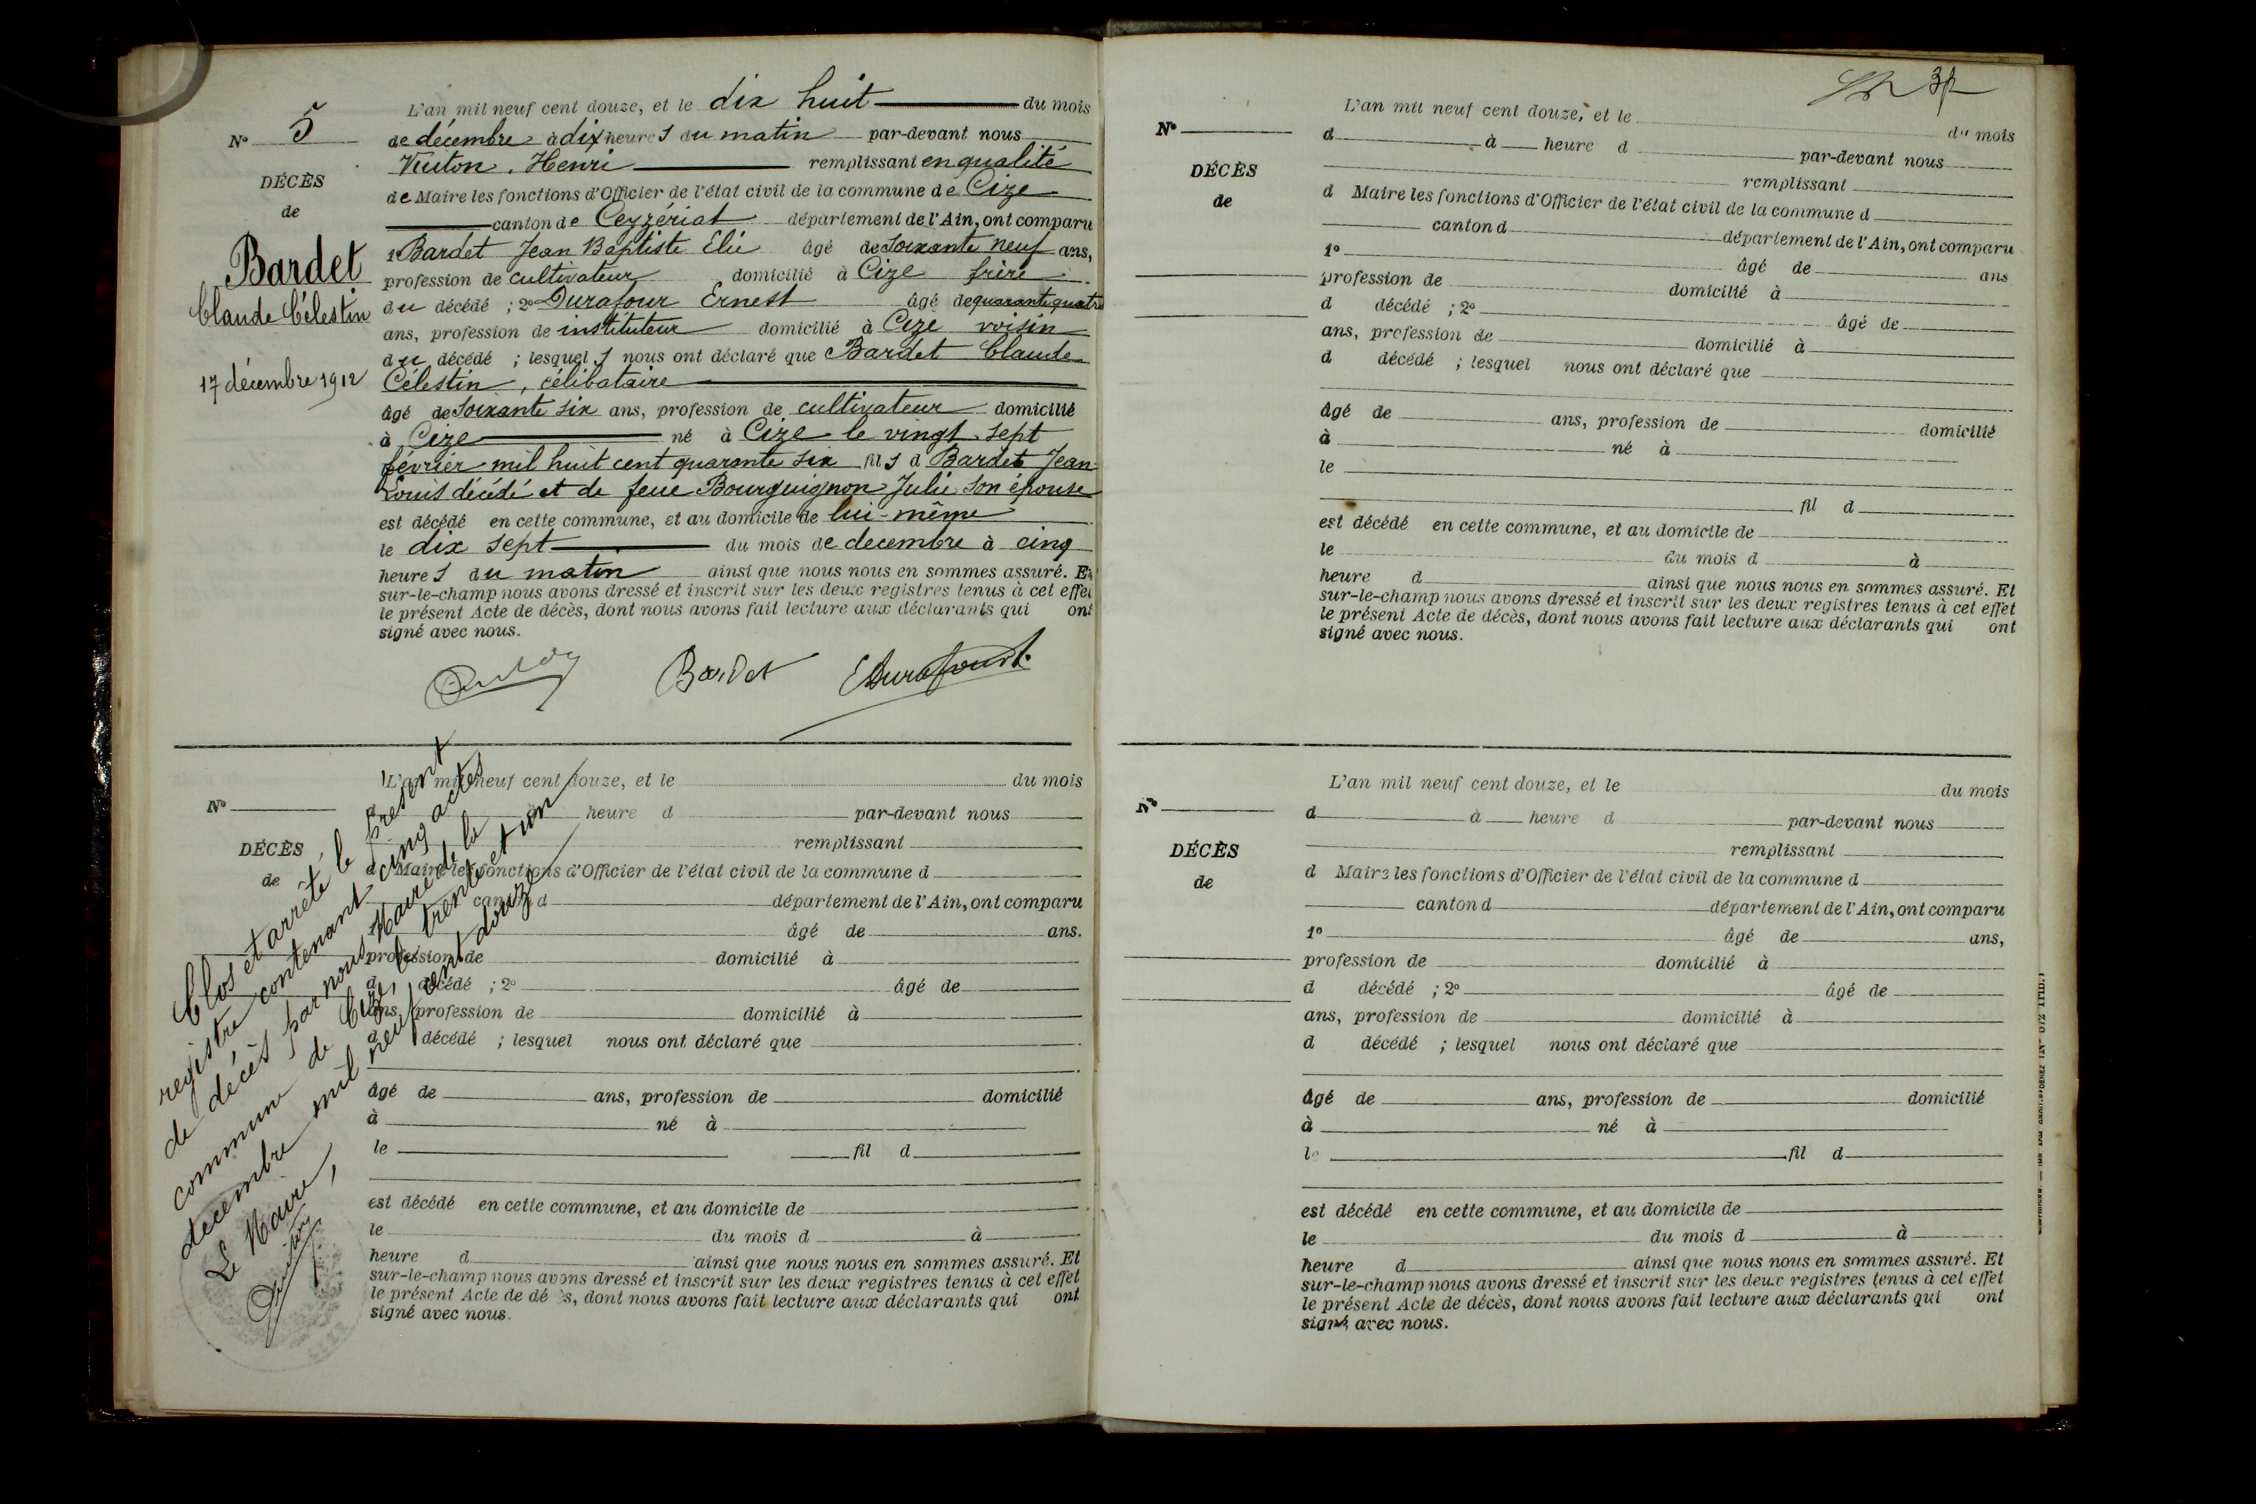 L'an mil neuf cent douze, et le dix huit du mois
N° 5
de décembre à dix heures du matin par-devant nous
Henri remplissant en qualité
DÉCÈS
de Maire les fonctions d'Officier de l'état civil de la commune de Cize
de
canton de Ceyzériat département de l'Ain, ont comparu
Bardet
Claude Célestin
17 décembre 1912
1° Bardet Jean Baptiste Elie âgé de soixante neuf ans,
profession de cultivateur domicilié à Cize frère
du décédé ; 2° Durafour Ernest âgé de quarante quatre
ans, profession de instituteur domicilié à Cize voisin
du décédé ; lesquels nous ont déclaré que Bardet Claude
Célestin, célibataire
âgé de soixante six ans, profession de cultivateur domicilié
à Cize né à Cize le vingt sept
février mil huit cent quarante six fils d Bardet Jean
Louis décédé et de feue Bourguignon Julie son épouse
est décédé en cette commune, et au domicile de lui-même
le dix sept du mois de decembre à cinq
heures du matin ainsi que nous nous en sommes assuré. Et
sur-le-champ nous avons dressé et inscrit sur les deux registres tenus à cet effet
le présent Acte de décès, dont nous avons fait lecture aux déclarants qui ont
signé avec nous.
Bardet EDurafour
L'an mil neuf cent douze, et le du mois
N°
d à heure d par-devant nous
remplissant
DÉCÈS
de
d Maire les fonctions d'Officier de l'état civil de la commune d
canton d département de l'Ain, ont comparu
âgé de ans.
profession de domicilié à
d décédé ; 2° âgé de
ans, profession de domicilié à
d décédé ; lesquel nous ont déclaré que
âgé de ans, profession de domicilié
à né à
le fil d
est décédé en cette commune, et au domicile de
le du mois d à
heure d ainsi que nous nous en sommes assuré. Et
sur-le-champ nous avons dressé et inscrit sur les deux registres tenus à cet effet
le présent Acte de décès, dont nous avons fait lecture aux déclarants qui ont
signé avec nous.
Clos et arrêté le présent
registre contenant cinq actes
de décès par nous Maire de la
commune de Cize, le trente et un
décembre mil neuf cent douze
Le Maire,
L'an mil neuf cent douze, et le du mois
N°
d à heure d par-devant nous
remplissant
DÉCÈS
de
d Maire les fonctions d'Officier de l'état civil de la commune d
canton d département de l'Ain, ont comparu
1° âgé de ans
profession de domicilié à
d décédé ; 2° âgé de
ans, profession de domicilié à
d décédé ; lesquel nous ont déclaré que
âgé de ans, profession de domicilié
à né à
le
fil d
est décédé en cette commune, et au domicile de
le du mois d à
heure d ainsi que nous nous en sommes assuré. Et
sur-le-champ nous avons dressé et inscrit sur les deux registres tenus à cet effet
le présent Acte de décès, dont nous avons fait lecture aux déclarants qui ont
signé avec nous.
L'an mil neuf cent douze, et le du mois
N°
d à heure d par-devant nous
remplissant
DÉCÈS
de
d Maire les fonctions d'Officier de l'état civil de la commune d
canton d département de l'Ain, ont comparu
1° âgé de ans,
profession de domicilié à
d décédé ; 2° âgé de
ans, profession de domicilié à
d décédé ; lesquel nous ont déclaré que
âgé de ans, profession de domicilié
à né à
le fil d
est décédé en cette commune, et au domicile de
le du mois d à
heure d ainsi que nous nous en sommes assuré. Et
sur-le-champ nous avons dressé et inscrit sur les deux registres tenus à cet effet
le présent Acte de décès, dont nous avons fait lecture aux déclarants qui ont
signé avec nous.